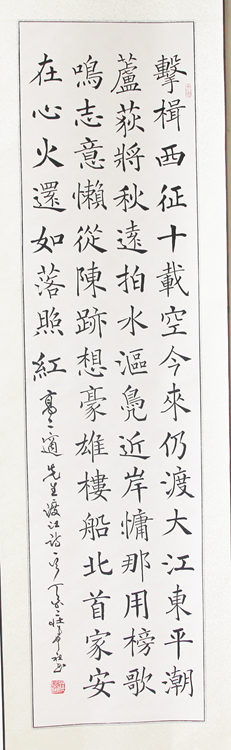 擊楫西征十載空今來仍渡大江東平潮
蘆荻將秋遠拍水漚鳧近岸慵那用榜歌
鳴志意懶從陳跡想豪雄樓船北首家安
在心火還如落照紅 高二適先生渡江詩一首丁亥